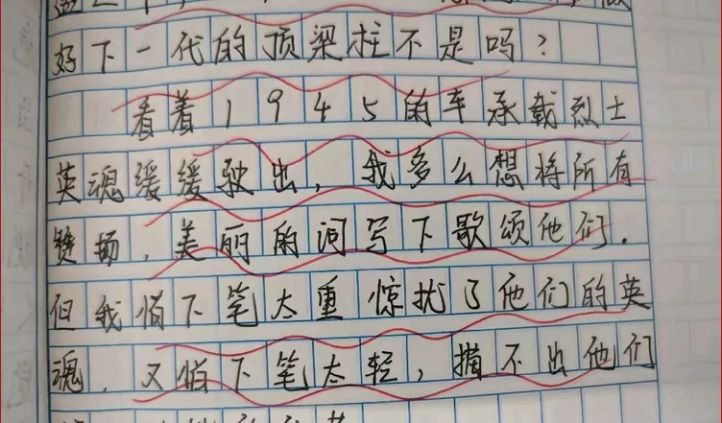 好下一代的顶梁柱不是吗？
看着1945的车承载烈士
英魂缓缓驶出，我多么想将所有
赞扬，美丽的词写下歌颂他们.
但我怕下笔太重惊扰了他们的英
魂，又怕下笔太轻，描不出他们